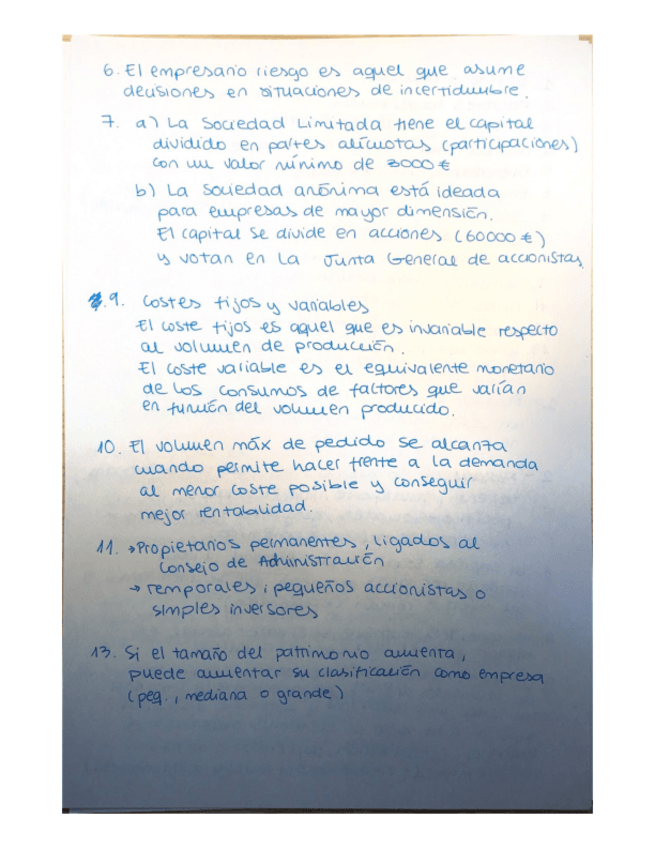 6. El empresario riesgo es aquel que asume
decisiones en situaciones de incertidumbre.
7. a) La Sociedad Limitada tiene el capital
dividido en partes alícuotas (participaciones)
con un valor mínimo de 3000 €
b) La sociedad anónima está ideada
para empresas de mayor dimensión.
El capital se divide en acciones (60000 €)
y votan en la Junta General de accionistas
9. Costes fijos y variables
El coste fijos es aquel que es invariable respecto
al volumen de producción.
El coste variable es el equivalente monetario
de los consumos de factores que varían
en función del volumen producido.
10. El volumen máx de pedido se alcanza
cuando permite hacer frente a la demanda
al menor coste posible y conseguir
mejor rentabilidad.
11. → Propietarios permanentes, ligados al
Consejo de Administración
→ temporales, pequeños accionistas o
simples inversores
13. Si el tamaño del patrimonio aumenta,
puede aumentar su clasificación como empresa
(peq., mediana o grande)